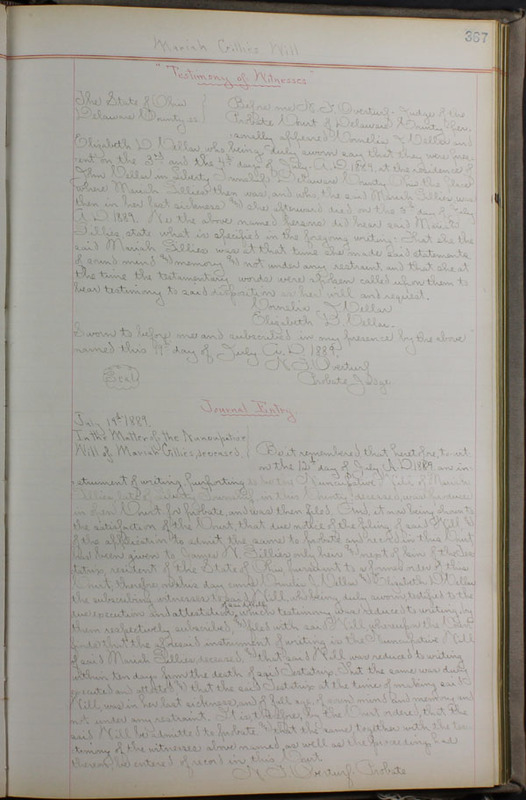 367
Mariah Gillies Will
"Testimony of Witnesses"
The State of Ohio
Delaware County ss
Before me N. F. Overturf Judge of the
Probate Court of Delaware County per-
sonally appeared Cornelia J. Vellar and
Elizabeth D. Vellar, who being duly sworn say that they were pres-
ent on the 3rd and the 4th days of July A.D. 1889, at the residence of
John Vellar in Liberty Township Delaware County Ohio the place
where Mariah Gillies then was, and who, the said Mariah Gillies was
then in her last sickness & she afterward died on the day of July
A.D. 1889. We the above named persons did hear said Mariah
Gillies state what is specified in the foregoing writing. That she the
said Mariah Gillies was at that time she made said statements
of sound mind & memory & not under any restraint, and that she at
the time the testamentary words were spoken called upon them to
bear testimony to said disposition as her will and request.
Cornelia J. Vellar
Elizabeth D. Vellar.
Sworn to before me and subscribed in my presence by the above
named this 11th day of July A.D. 1889.
N. F. Overturf
Probate Judge
Seal
Journal Entry.
July 19th 1889.
In the Matter of the Nuncupative
Will of Mariah Gillies deceased.
Be it remembered that heretofore, to wit
on the 12th day of July A.D. 1889 an in-
strument of writing purporting to be the Nuncupative Will of Mariah
Gillies, late of Liberty Township in this County deceased, was produced
in open Court for probate, and was then filed. And it now being shown to
the satisfaction of the Court that due notice of the filing of said Will &
of the application to admit the same to probate and record in this Court
has been given to James N. Gillies only heir & next of kin of the Tes-
tatrix resident of the State of Ohio pursuant to a former order of this
Court, therefore on this day came Cornelia J. Vellar & Elizabeth D. Vellar
the subscribing witnesses to said Will who being duly sworn, testified to the
due execution and attestation of said Will, which testimony was reduced to writing by
them respectively subscribed, & filed with said Will whereupon the Court
finds that the aforesaid instrument of writing is the Nuncupative Will
of said Mariah Gillies deceased, & that said Will was reduced to writing
within ten days from the death of said Testatrix. That the same was duly
executed and attested & that the said Testatrix at the time of making said
Will, was in her last sickness, and of full age, of sound mind and memory and
not under any restraint. It is therefore, by the Court ordered, that the
said Will be admitted to probate & that the same together with the tes-
timony of the witnesses above named, as well as the proceedings had
therein, be entered of record in this Court
N. F. Overturf Probate